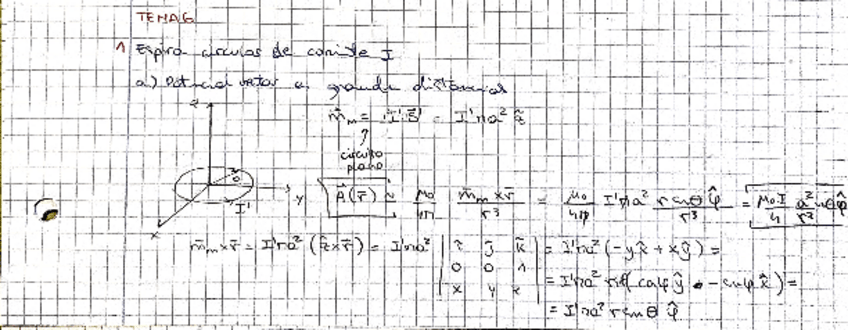 TEMA 6
1 Espira circular de corriente I
a) Potencial vector a grandes distancias
z
m⃗ₘ = I'S⃗ = I'πa² ẑ
circuito plano
a
I'
y
x
A⃗(r⃗) ≈ μ₀/4π m⃗ₘ×r⃗/r³ = μ₀/4π I'πa² r senθ/r³ φ̂ = μ₀I/4 a²/r² senθ φ̂
m⃗ₘ×r⃗ = I'πa² (ẑ×r⃗) = I'πa² | = I'πa² (-yx̂ + xŷ) =
0 0 1 = I'πa²
x y z
= I'πa² r senθ φ̂